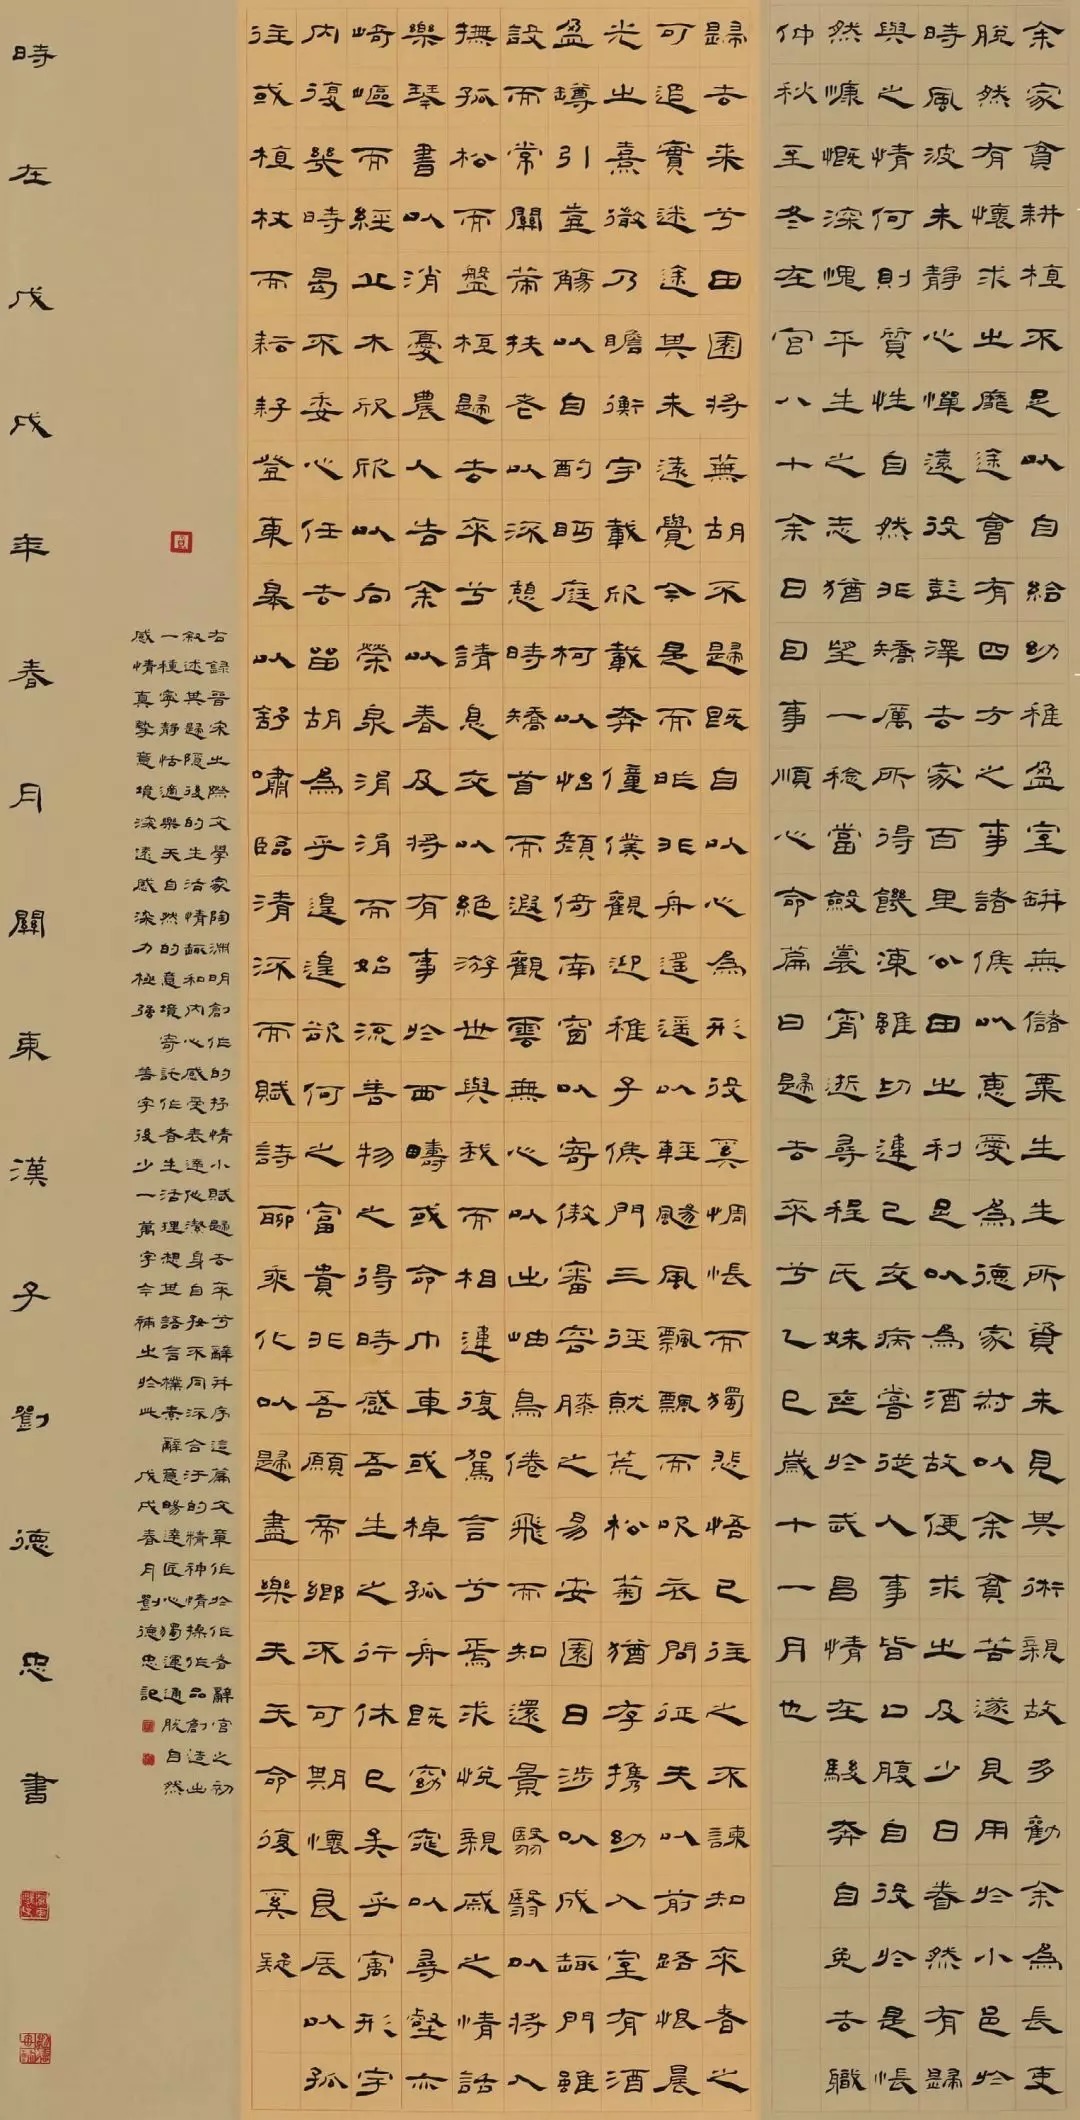 余家貧耕植不足以自給幼稚盈室缾無儲粟生生所資未見其術親故多勸余為長吏
脫然有懷求之靡途會有四方之事諸侯以惠愛為德家叔以余貧苦遂見用於小邑於
時風波未靜心憚遠役彭澤去家百里公田之利足以為酒故便求之及少日眷然有歸
與之情何則質性自然非矯厲所得饑凍雖切違己交病嘗從人事皆口腹自役於是悵
然慷慨深愧平生之志猶望一稔當斂裳宵逝尋程氏妹喪於武昌情在駿奔自免去職
仲秋至冬在官八十余日因事順心命篇曰歸去來兮乙巳歲十一月也
歸去來兮田園將蕪胡不歸既自以心為形役奚惆悵而獨悲悟已往之不諫知來者之
可追實迷途其未遠覺今是而昨非舟遙遙以輕颺風飄飄而吹衣問征夫以前路恨晨
光之熹微乃瞻衡宇載欣載奔僮僕觀迎稚子候門三徑就荒松菊猶存攜幼入室有酒
盈罇引壺觴以自酌眄庭柯以怡顏倚南窗以寄傲審容膝之易安園日涉以成趣門雖
設而常關策扶老以流憩時矯首而遐觀雲無心以出岫鳥倦飛而知還景翳翳以將入
撫孤松而盤桓歸去來兮請息交以絕游世與我而相違復駕言兮焉求悅親戚之情話
樂琴書以消憂農人告余以春及將有事於西疇或命巾車或棹孤舟既窈窕以尋壑亦
崎嶇而經丘木欣欣以向榮泉涓涓而始流善物之得時感吾生之行休已矣乎寓形宇
內復幾時曷不委心任去留胡為乎遑遑欲何之富貴非吾願帝鄉不可期懷良辰以孤
往或植杖而耘耔登東皋以舒嘯臨清流而賦詩聊乘化以歸盡樂夫天命復奚疑
右錄晉宋之際文學家陶淵明創作的抒情小賦歸去來兮辭并序這篇文章作於作者辭官之初
敘述其歸隱後的生活情趣和內心感受表達他潔身自好不同流合汙的精神情操作品創造出
一種寧靜恬適樂天自然的意境寄託作者生活理想其語言樸素辭意暢達匠心獨運通脫自然
感情真摯意境深遠感染力極強善字後少一萬字今補之於此戊戌春月劉德忠記
時在戊戌年春月關東漢子劉德忠書